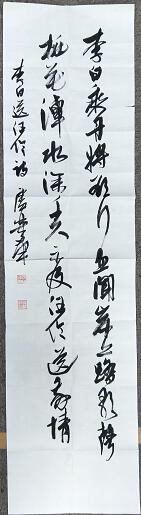 李白乘舟将欲行忽闻岸上踏歌声
桃花潭水深千尺不及汪伦送我情
李白送汪伦诗